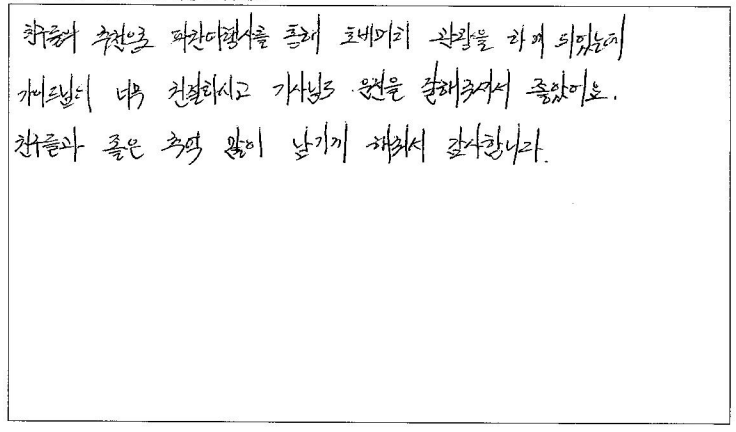 친구들의 추천으로 파란여행사를 통해 토바머리 관광을 하게 되었는데
가이드님이 너무 친절하시고 기사님도 운전을 잘해주셔서 좋았어요.
친구들과 좋은 추억 많이 남기게 해줘서 감사합니다.